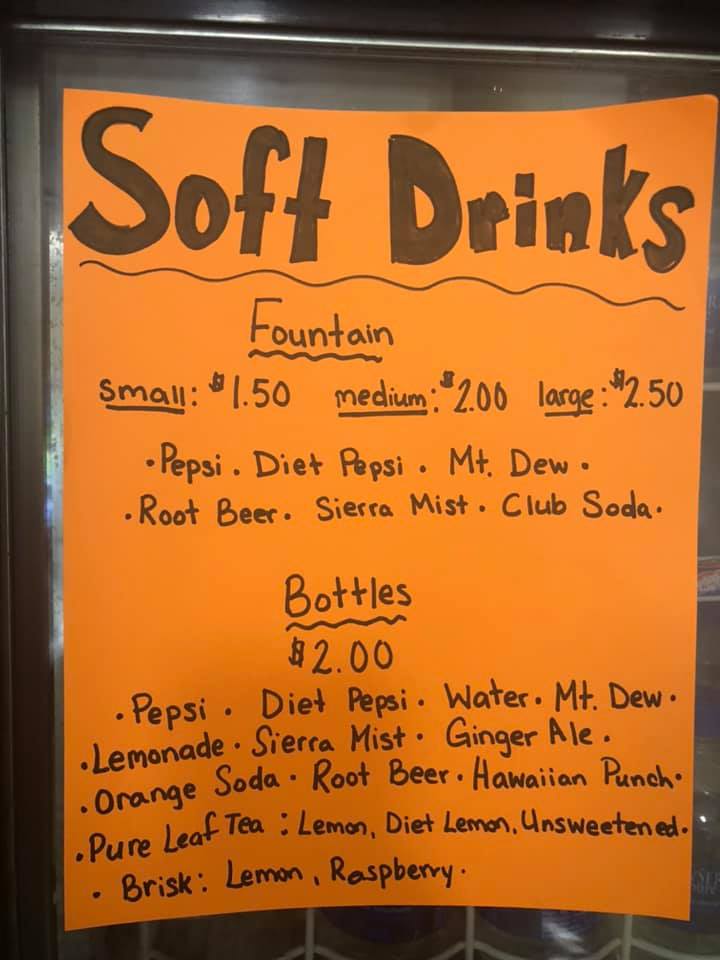 Soft Drinks
Fountain
small: $1.50 medium: $2.00 large: $2.50
·Pepsi . Diet Pepsi . Mt. Dew .
·Root Beer. Sierra Mist. Club Soda.
Bottles
$2.00
·Pepsi . Diet Pepsi. Water. Mt. Dew.
·Lemonade · Sierra Mist· Ginger Ale.
·Orange Soda· Root Beer· Hawaiian Punch·
·Pure Leaf Tea : Lemon, Diet Lemon, Unsweetened.
· Brisk: Lemon, Raspberry.